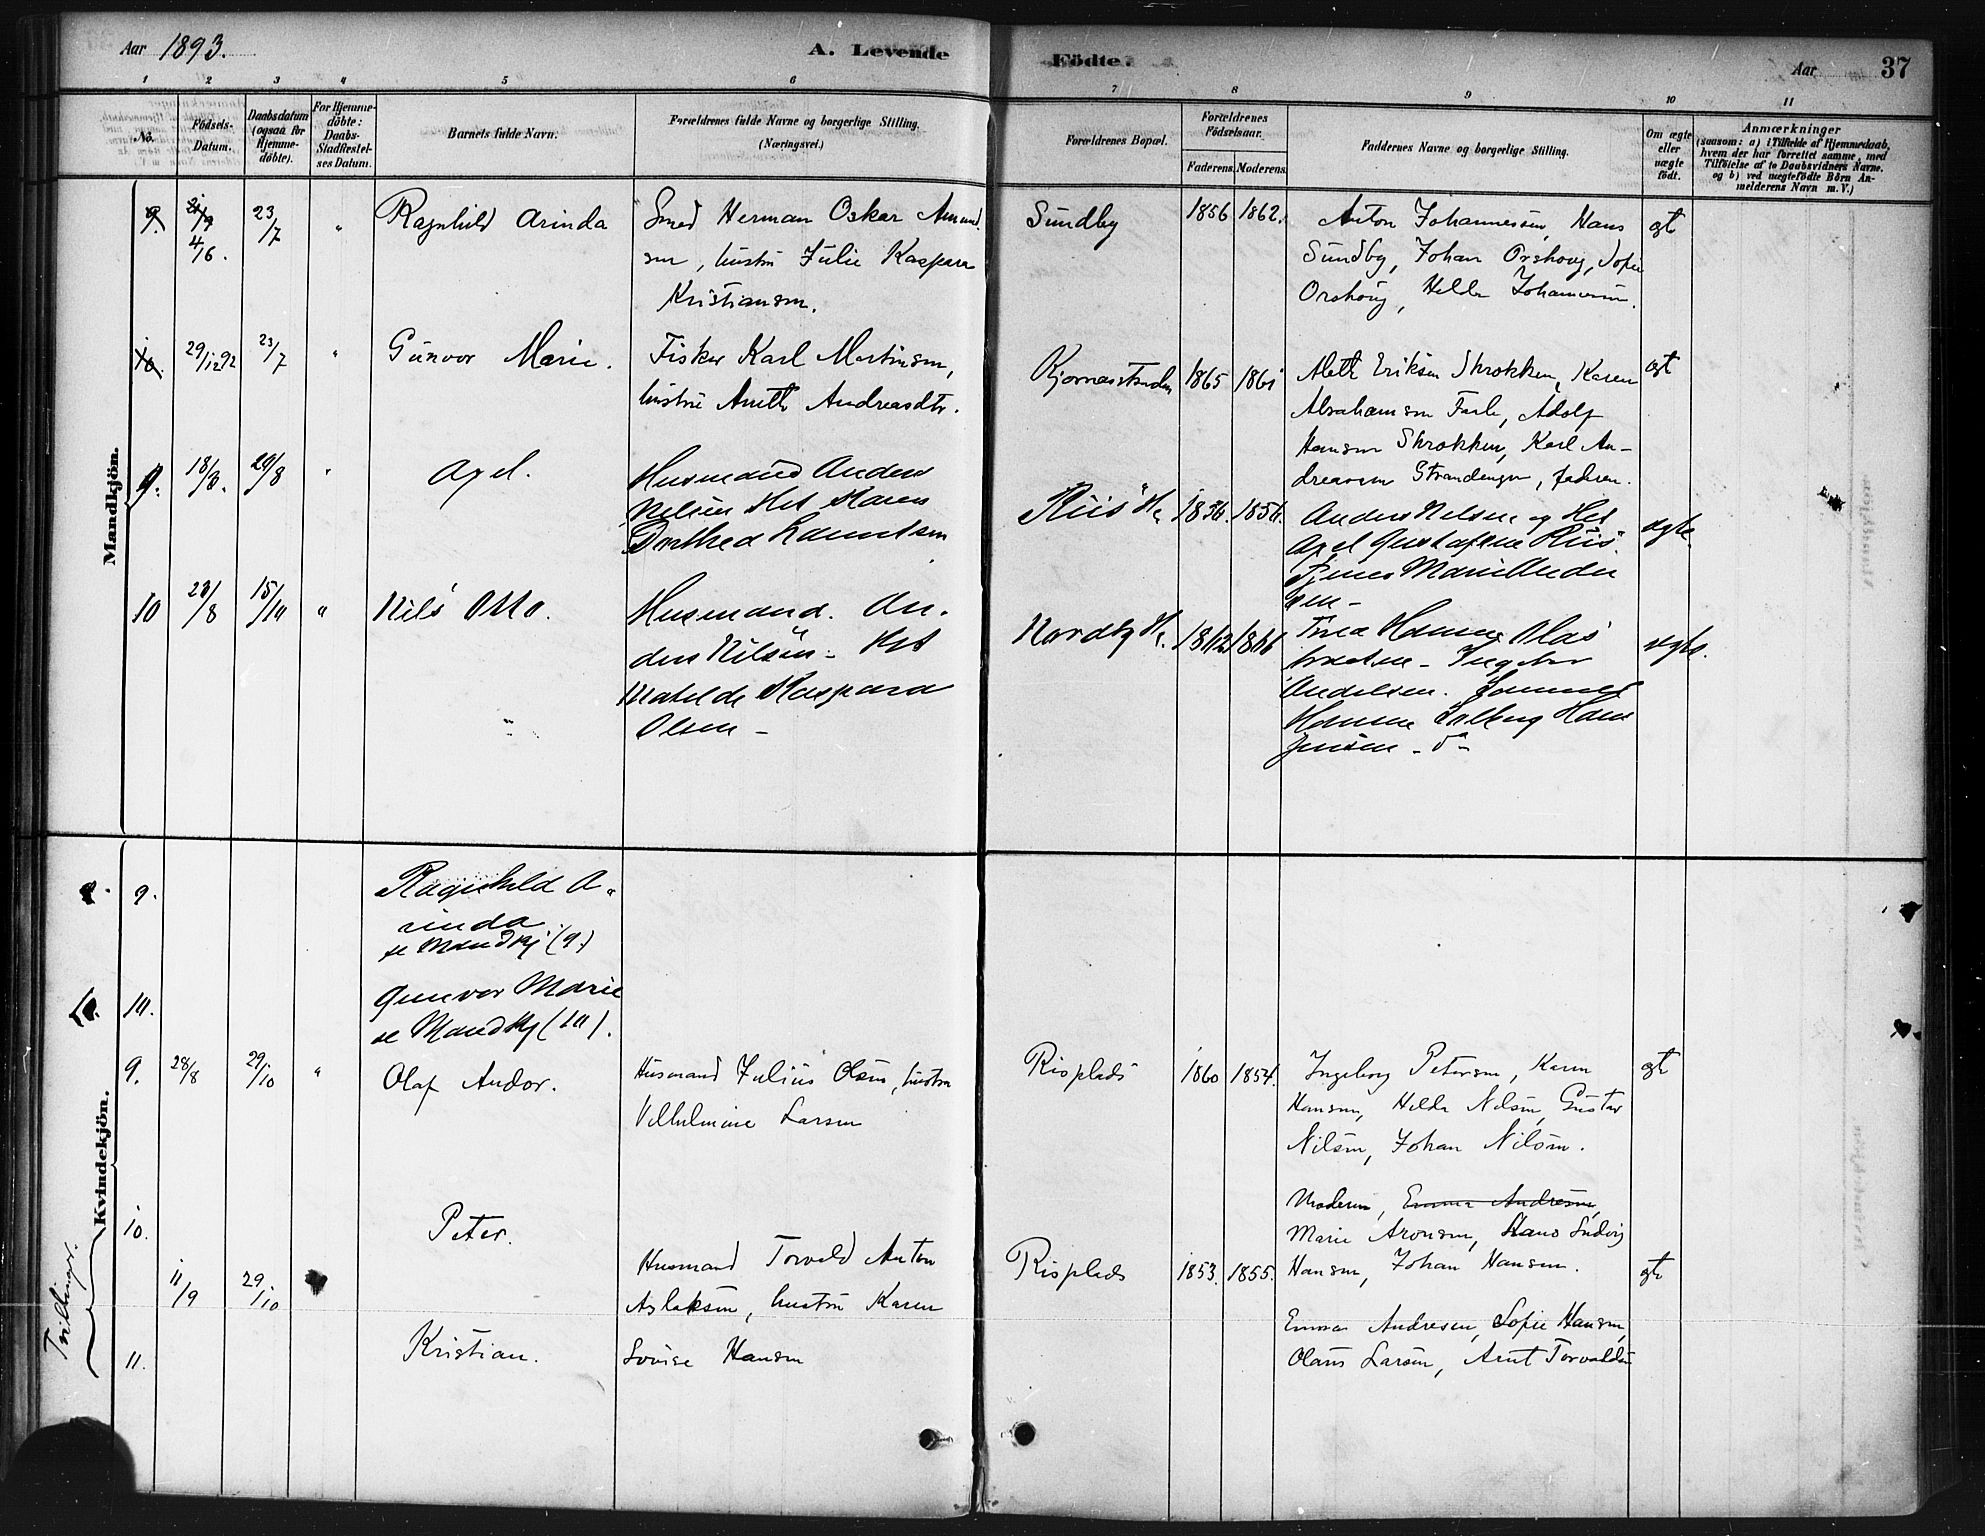 Aar 1893.
A. Levende
Födte.
Aar
37
1 2 3 4 5 6 7 8 9 10 11
No.
Födsels-
Datum.
Daabsdatum
(ogsaa for
Hjemme-
döbte).
For Hjemme-
döbte:
Daabs-
Stadfæstel-
ses Datum.
Barnets fulde Navn.
Forældrenes fulde Navne og borgerlige Stilling.
(Næringsvei.)
Forældrenes Bopæl.
Forældrenes
Födselsaar.
Faderens. Moderens.
Faddernes Navne og borgerlige Stilling.
Om ægte
eller
uægte
födt.
Anmærkninger
(saasom: a) i Tilfælde af Hjemmedaab,
hvem der har forrettet samme, med
Tilföielse af to Daabsvidners Navne.
og b) ved uægtefödte Börn An-
melderens Navn m. V.)
Mandkjön.
9. 4/6. 23/7 " Ragnhild Arinda
Smed Herman Oskar Amund
sen, hustru Julie Kaspara
Kristiansen.
Sundby 1856 1862.
Anton Johannessen, Hans
Sundby, Johan Orshoug, Sofie
Orshoug, Helda Johannesen.
gt
10. 29/12 92 23/7 " Gunvor Marie.
Fisker Karl Martinsen,
hustru Aneth Andreasdtr.
1865 1861
Aleth Eriksen Skrokken, Karen
Abrahamsen, Adolf
Hansen Skrokken, Karl An-
dreasen Strandengen, faderen.
gt
9. 18/3. 20/8 " Axel.
Husmand Anders
Nilsen Hst Maren
Dorthea
Riis 1836. 1856.
Anders Nilsen og Hst
Axel Gustafsen Riis
Marie Ander
sen -
ægte.
10 28/8 15/10 " Nils Otto.
Husmand. An-
ders Nilsen - Hst
Matilde Kaspara
Olsen -
Nordby 1862 1866
Hanna Olas
Ingebor
Andersen.
Hanna Solberg Hans
Jensen - do -
ægte.
Kvindekjön.
9.
Ragnhild A-
rinda
se Mandkj (9.)
10.
Gunvor Marie
se Mandkj (10).
9. 28/8 29/10 " Olaf Andor.
Husmand Julius Olsen, hustru
Vilhelmine Larsen
Risplads 1860 1854.
Ingeborg Petersen, Karen
Hansen, Helda Nilsen, Gustav
Nilsen, Johan Nilsen.
gt
Tvillinger.
10. Peter.
11/9 29/10
Husmand Torvald Anton
Aslaksen, hustru Karen
Lovise Hansen
Risplads 1853. 1855.
Moderen, Emma Andresen,
Marie Aronsen, Hans Ludvig
Hansen, Johan Hansen.
gt
11. Kristian.
Emma Andresen, Sofie Hansen,
Olaus Larsen, Arnt Torvaldsen